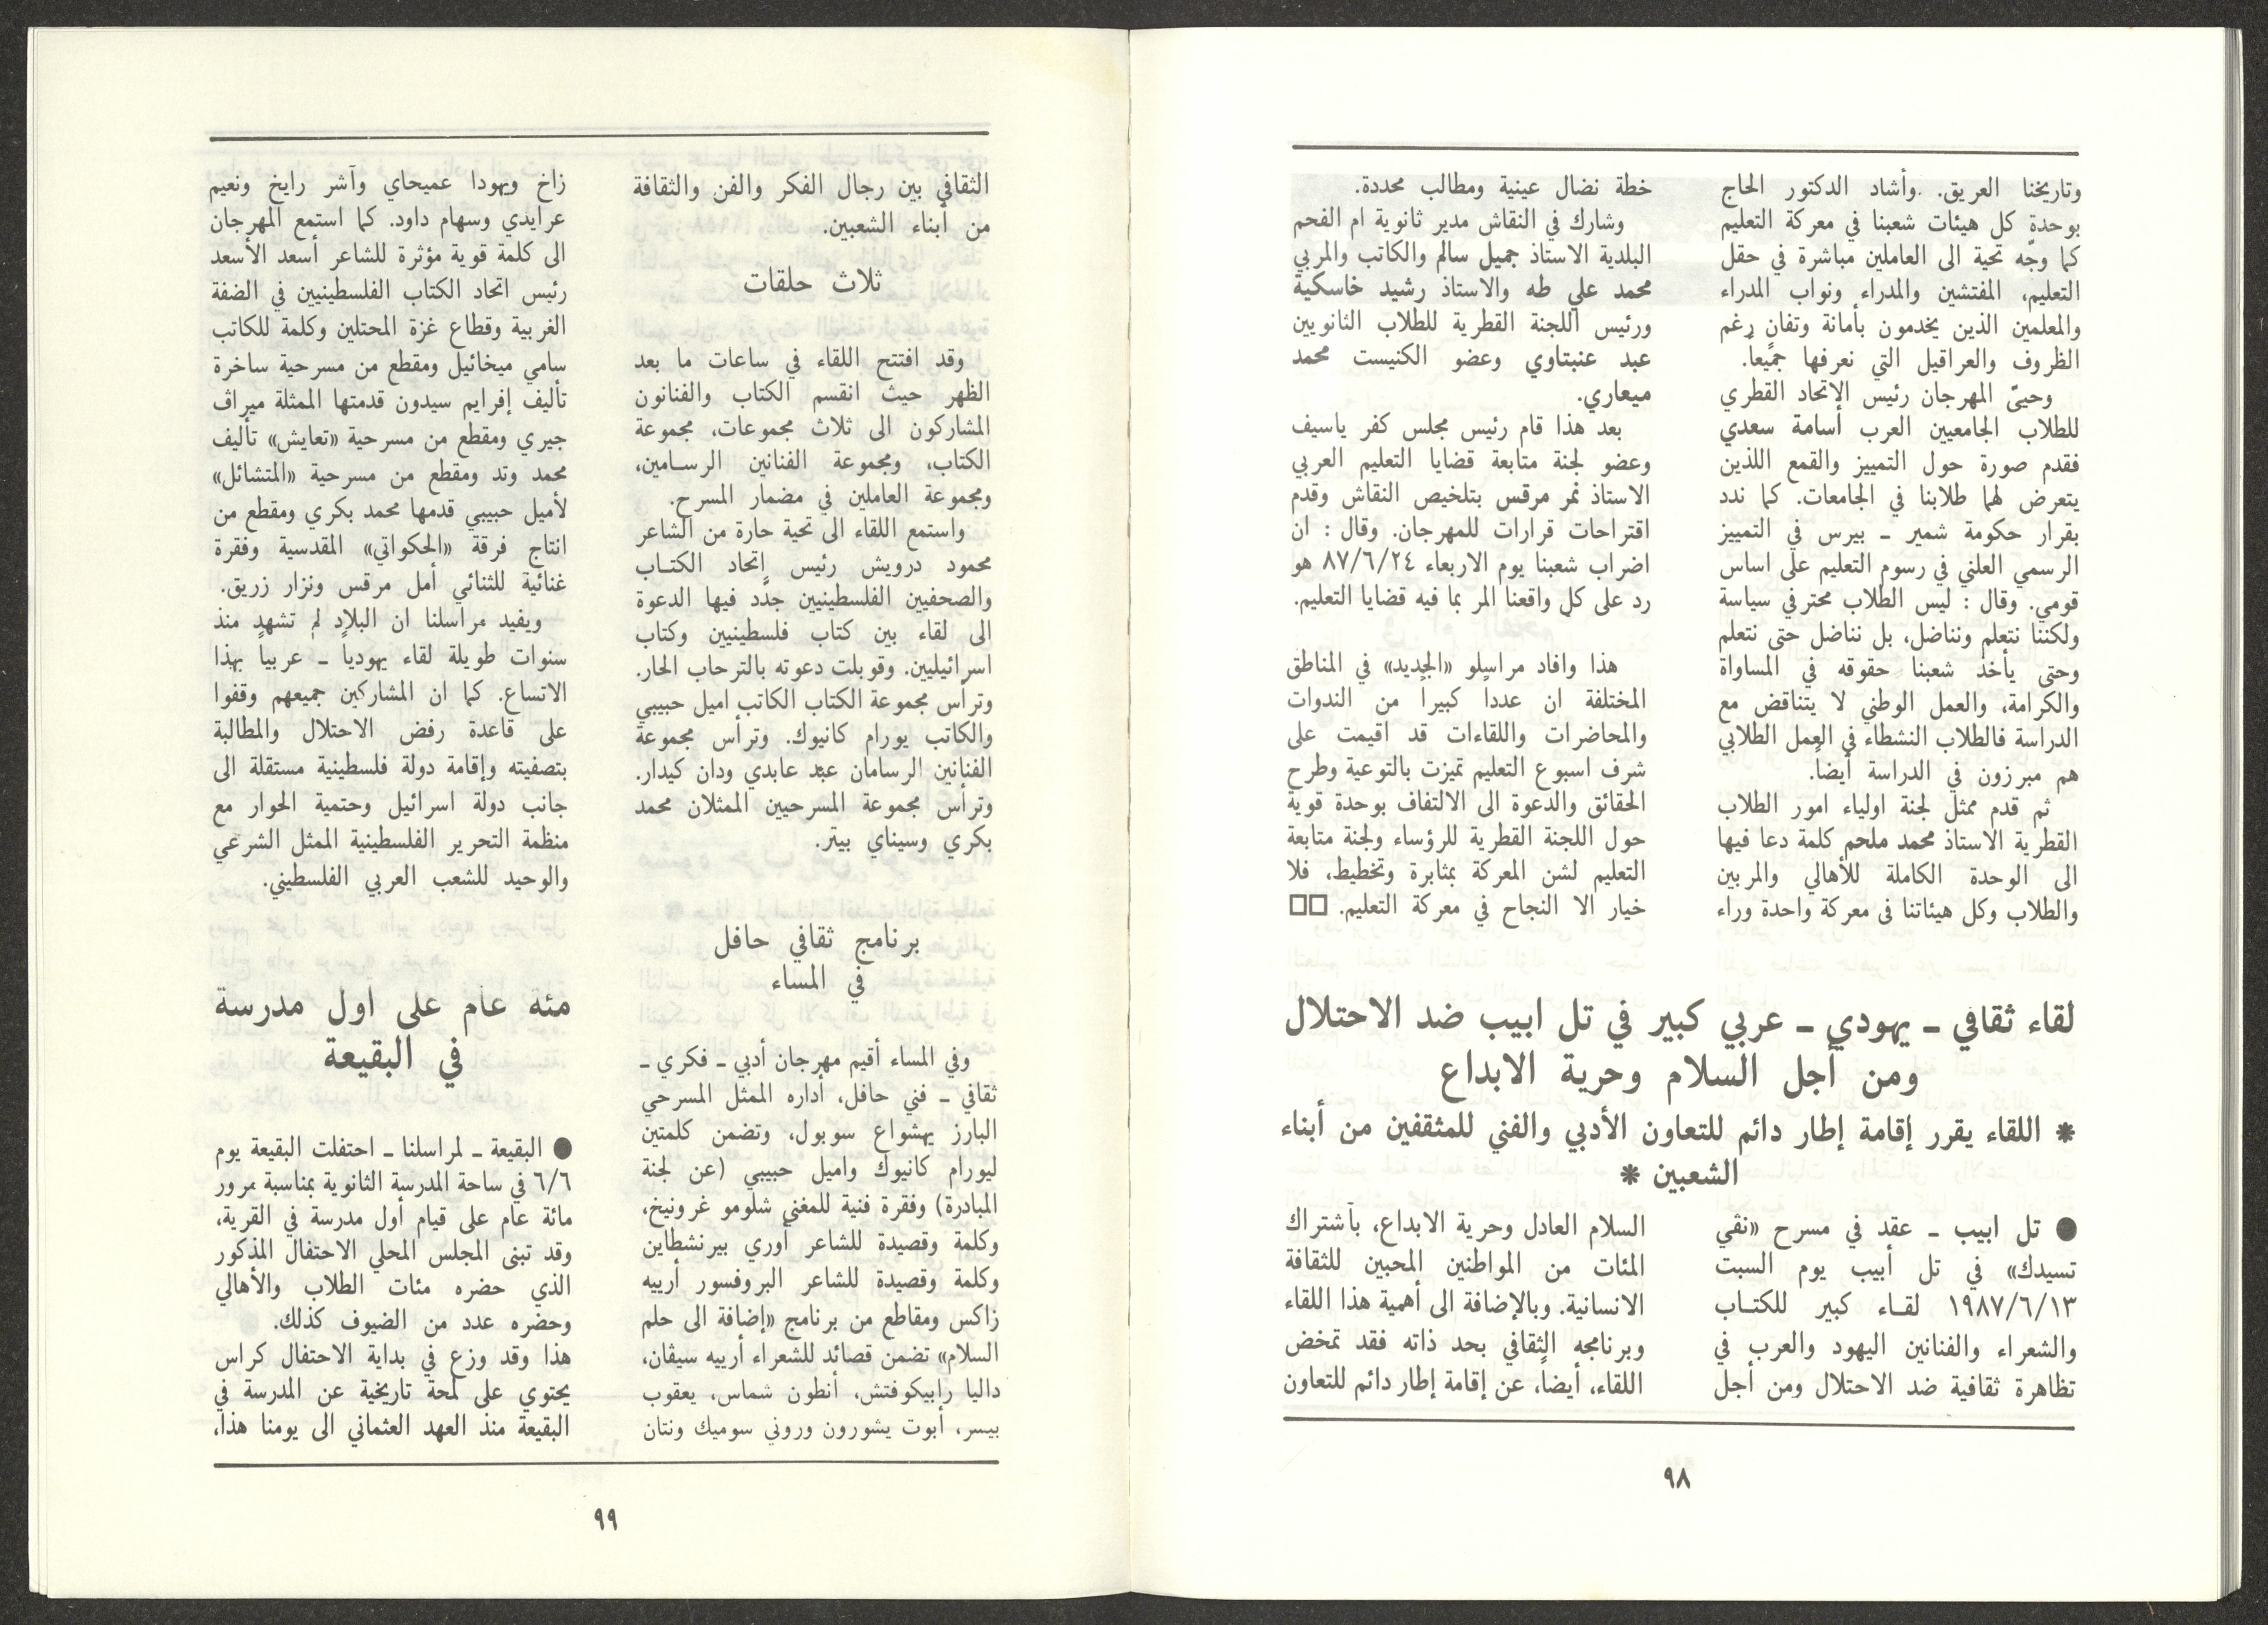 وتاريخنا العريق. وأشاد الدكتور الحاج
بوحدة كل هيئات شعبنا في معركة التعليم
كما وجّه تحية الى العاملين مباشرة في حقل
التعليم، المفتشين والمدراء ونواب المدراء
والمعلمين الذين يخدمون بأمانة وتفانٍ رغم
الظروف والعراقيل التي نعرفها جميعاً.
وحيىّ المهرجان رئيس الإتحاد القطري
للطلاب الجامعيين العرب أسامة سعدي
فقدم صورة حول التمييز والقمع اللذين
يتعرض لهما طلابنا في الجامعات. كما ندد
بقرار حكومة شمير ـ بيرس في التمييز
الرسمي العلني في رسوم التعليم على اساس
قومي. وقال : ليس الطلاب محترفي سياسة
ولكننا نتعلم ونناضل، بل نناضل حتى نتعلم
وحتى يأخذ شعبنا حقوقه في المساواة
والكرامة، والعمل الوطني لا يتناقض مع
الدراسة فالطلاب النشطاء في العمل الطلابي
هم مبرزون في الدراسة أيضاً.
ثم قدم ممثل لجنة اولياء امور الطلاب
القطرية الاستاذ محمد ملحم كلمة دعا فيها
الى الوحدة الكاملة للأهالي والمربين
والطلاب وكل هيئاتنا في معركة واحدة وراء
خطة نضال عينية ومطالب محددة.
وشارك في النقاش مدير ثانوية ام الفحم
البلدية الاستاذ جميل سالم والكاتب والمربي
محمد علي طه والاستاذ رشيد خاسكية
ورئيس اللجنة القطرية للطلاب الثانويين
عبد عنبتاوي وعضو الكنيست محمد
ميعاري.
بعد هذا قام رئيس مجلس كفر ياسيف
وعضو لجنة متابعة قضايا التعليم العربي
الاستاذ نمر مرقس بتلخيص النقاش وقدم
اقتراحات قرارات للمهرجان. وقال : ان
اضراب شعبنا يوم الاربعاء ٨٧/٦/٢٤ هو
رد على كل واقعنا المر بما فيه قضايا التعليم.
هذا وافاد مراسلو «الجديد» في المناطق
المختلفة ان عدداً كبيراً من الندوات
والمحاضرات واللقاءات قد اقيمت على
شرف اسبوع التعليم تميزت بالتوعية وطرح
الحقائق والدعوة الى الالتفاف بوحدة قوية
حول اللجنة القطرية للرؤساء ولجنة متابعة
التعليم لشن المعركة بمثابرة وتخطيط، فلا
خيار الا النجاح في معركة التعليم. □□
لقاء ثقافي ـ يهودي ـ عربي كبير في تل ابيب ضد الاحتلال
ومن أجل السلام وحرية الابداع
* اللقاء يقرر إقامة إطار دائم للتعاون الأدبي والفني للمثقفين من أبناء
الشعبين *
● تل ابيب ـ عقد في مسرح «نڤي
تسيدك» في تل أبيب يوم السبت
١٩٨٧/٦/١٣ لقـاء كبير للكتـاب
والشعراء والفنانين اليهود والعرب في
تظاهرة ثقافية ضد الاحتلال ومن أجل
السلام العادل وحرية الابداع، بآشتراك
المئات من المواطنين المحبين للثقافة
الانسانية. وبالإضافة الى أهمية هذا اللقاء
وبرنامجه الثقافي بحد ذاته فقد تمخض
اللقاء، أيضاً، عن إقامة إطار دائم للتعاون
٩٨
الثقافي بين رجال الفكر والفن والثقافة
من أبناء الشعبين.
ثلاث حلقات
وقد افتتح اللقاء في ساعات ما بعد
الظهر حيث انقسم الكتاب والفنانون
المشاركون الى ثلاث مجموعات، مجموعة
الكتاب، ومجموعة الفنانين الرسـامين،
ومجموعة العاملين في مضمار المسرح.
واستمع اللقاء الى تحية حارة من الشاعر
محمود درويش رئيس إتحاد الكتـاب
والصحفيين الفلسطينيين جدَّد فيها الدعوة
الى لقاء بين كتاب فلسطينيين وكتاب
اسرائيليين. وقوبلت دعوته بالترحاب الحار.
وترأس مجموعة الكتاب الكاتب اميل حبيبي
والكاتب يورام كانيوك. وترأس مجموعة
الفنانين الرسامان عبد عابدي ودان كيدار.
وترأس مجموعة المسرحيين الممثلان محمد
بكري وسيناي بيتر.
برنامج ثقافي حافل
في المساء
وفي المساء أقيم مهرجان أدبي ـ فكري ـ
ثقافي ـ فني حافل، أداره الممثل المسرحي
البارز يهشواع سوبول، وتضمن كلمتين
ليورام كانيوك واميل حبيبي (عن لجنة
المبادرة) وفقرة فنية للمغني شلومو غرونيخ،
وكلمة وقصيدة للشاعر أوري بيرنشطاين
وكلمة وقصيدة للشاعر البروفسور أرييه
زاكس ومقاطع من برنامج «إضافة الى حلم
السلام» تضمن قصائد للشعراء أرييه سيڤان،
داليا رابيكوفتش، أنطون شماس، يعقوب
بيسر، أبوت يشورون وروني سوميك ونتان
زاخ ويهودا عميحاي وآشر رايخ ونعيم
عرايدي وسهام داود. كما استمع المهرجان
الى كلمة قوية مؤثرة للشاعر أسعد الأسعد
رئيس اتحاد الكتاب الفلسطينيين في الضفة
الغربية وقطاع غزة المحتلين وكلمة للكاتب
سامي ميخائيل ومقطع من مسرحية ساخرة
تأليف إفرايم سيدون قدمتها الممثلة ميراڤ
جيري ومقطع من مسرحية «تعايش» تأليف
محمد وتد ومقطع من مسرحية «المتشائل»
لأميل حبيبي قدمها محمد بكري ومقطع من
انتاج فرقة «الحكواتي» المقدسية وفقرة
غنائية للثنائي أمل مرقس ونزار زريق.
ويفيد مراسلنا ان البلاد لم تشهد منذ
سنوات طويلة لقاء يهودياً ـ عربياً بهذا
الاتساع. كما ان المشاركين جميعهم وقفوا
على قاعدة رفض الاحتلال والمطالبة
بتصفيته وإقامة دولة فلسطينية مستقلة الى
جانب دولة اسرائيل وحتمية الحوار مع
منظمة التحرير الفلسطينية الممثل الشرعي
والوحيد للشعب العربي الفلسطيني.
مئة عام على اول مدرسة
في البقيعة
● البقيعة ـ لمراسلنا ـ احتفلت البقيعة يوم
٦/٦ في ساحة المدرسة الثانوية بمناسبة مرور
مائة عام على قيام أول مدرسة في القرية،
وقد تبنى المجلس المحلي الاحتفال المذكور
الذي حضره مئات الطلاب والأهالي
وحضره عدد من الضيوف كذلك.
هذا وقد وزع في بداية الاحتفال كراس
يحتوي على لمحة تاريخية عن المدرسة في
البقيعة منذ العهد العثماني الى يومنا هذا،
٩٩